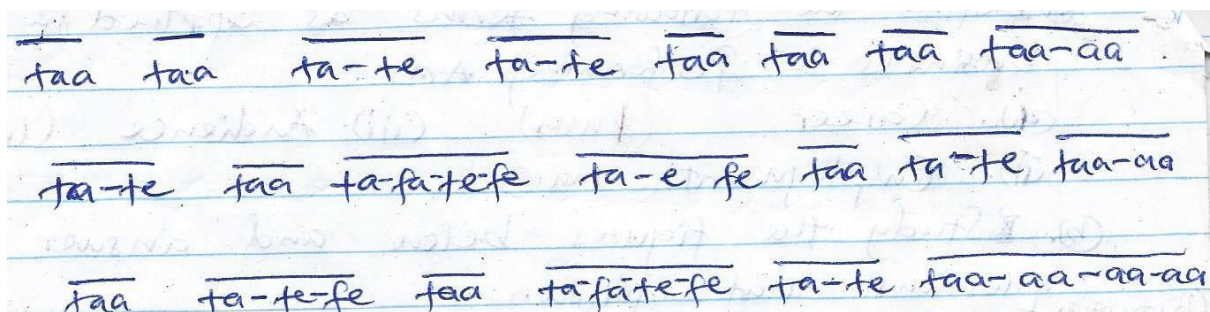 taa taa ta-te ta-te taa taa taa taa-aa
ta-te taa ta-fa-te-fe ta-e fe taa ta-te taa-aa
taa ta-te-fe taa ta-fa-te-fe ta-te taa-aa-aa-aa